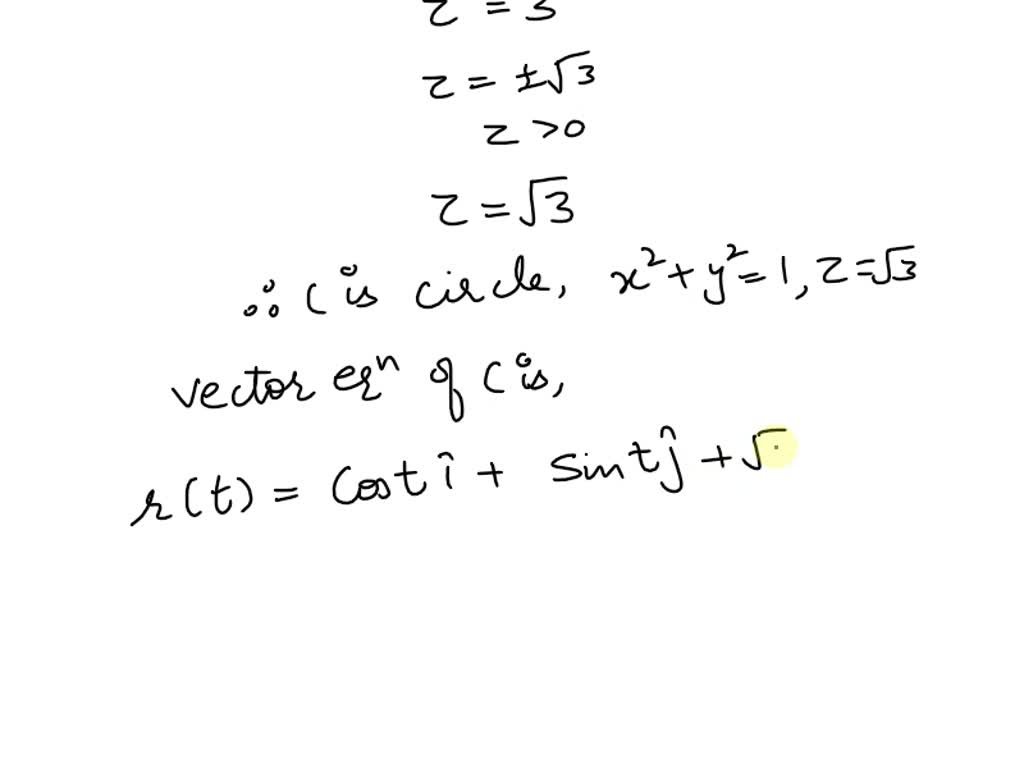 z = 3
z = ±√3
z > 0
z = √3
∴ C is circle, x² + y² = 1, z = √3
vector eqⁿ of C is,
r(t) = cost î + sint ĵ + √